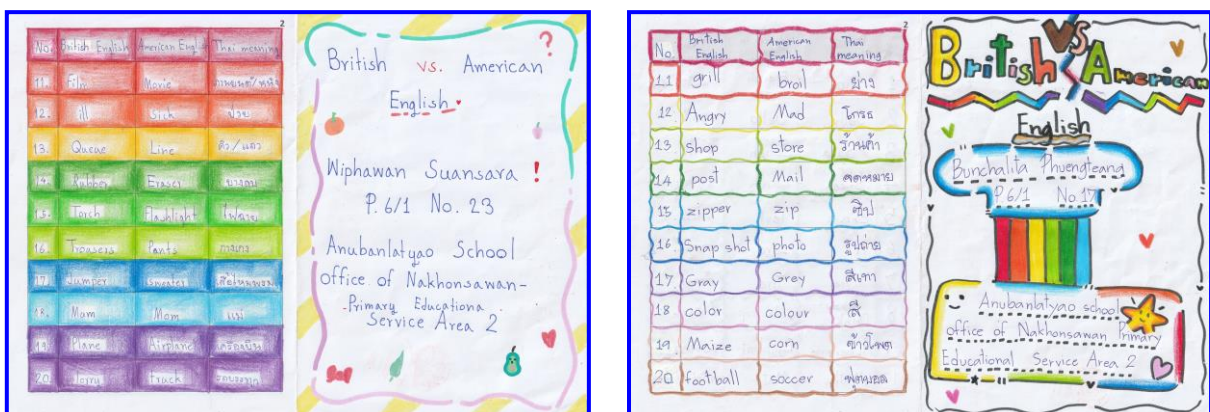 2
No. British English American Engli Thai meaning
11. Film Movie ภาพยนตร์/หนัง
12. ill Sick ป่วย
13. Queue Line คิว/แถว
14. Rubber Eraser ยางลบ
15. Torch Flashlight ไฟฉาย
16. Trousers Pants กางเกง
17. Jumper Sweater
18. Mam Mom แม่
19. Plane Airplane เครื่องบิน
20. Lorry Truck รถบรรทุก
British vs. American ?
English
Wiphawan Suansara !
P. 6/1 No. 23
Anubanlatyao School
office of Nakhonsawan-
-Primary Educationa
Service Area 2
2
No. British English American English Thai meaning
11 grill broil ย่าง
12 Angry Mad โกรธ
13 shop store ร้านค้า
14 post Mail จดหมาย
15 zipper zip ซิป
16 Snap shot photo รูปถ่าย
17 Gray Grey สีเทา
18 color colour สี
19 Maize corn ข้าวโพด
20 football soccer ฟุตบอล
British VS American
English
Bunchalita Phuengteang
P.6/1 No.17
Anubanlatyao school
office of Nakhonsawan Primary
Educational Service Area 2